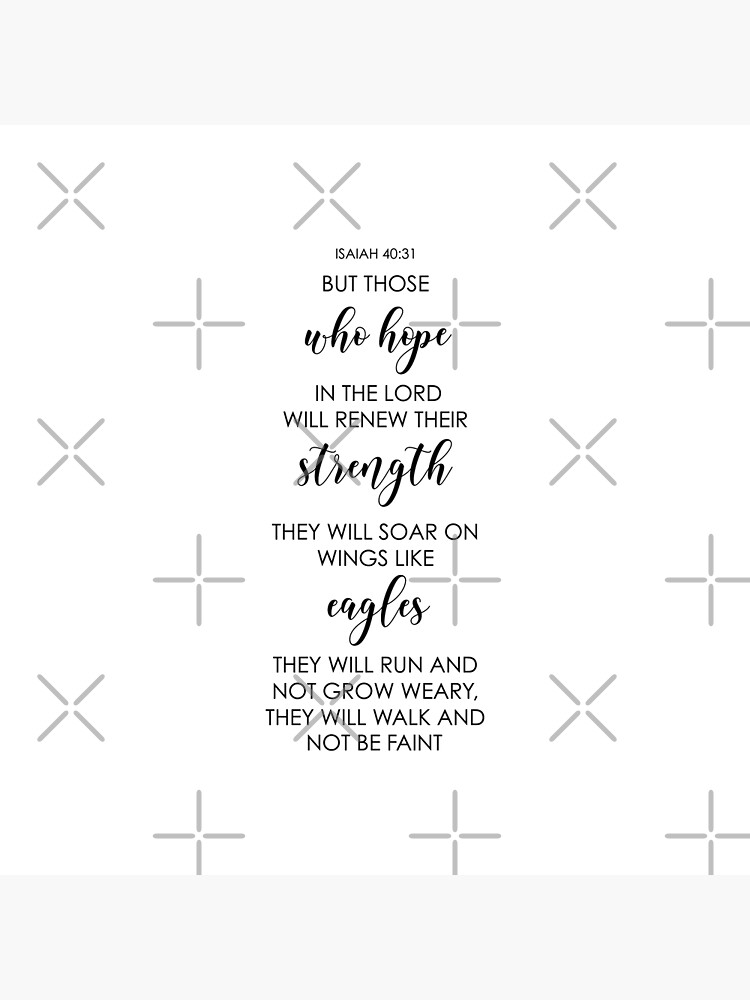 ISAIAH 40:31
BUT THOSE
who hope
IN THE LORD
WILL RENEW THEIR
strength
THEY WILL SOAR ON
WINGS LIKE
eagles
THEY WILL RUN AND
NOT GROW WEARY,
THEY WILL WALK AND
NOT BE FAINT